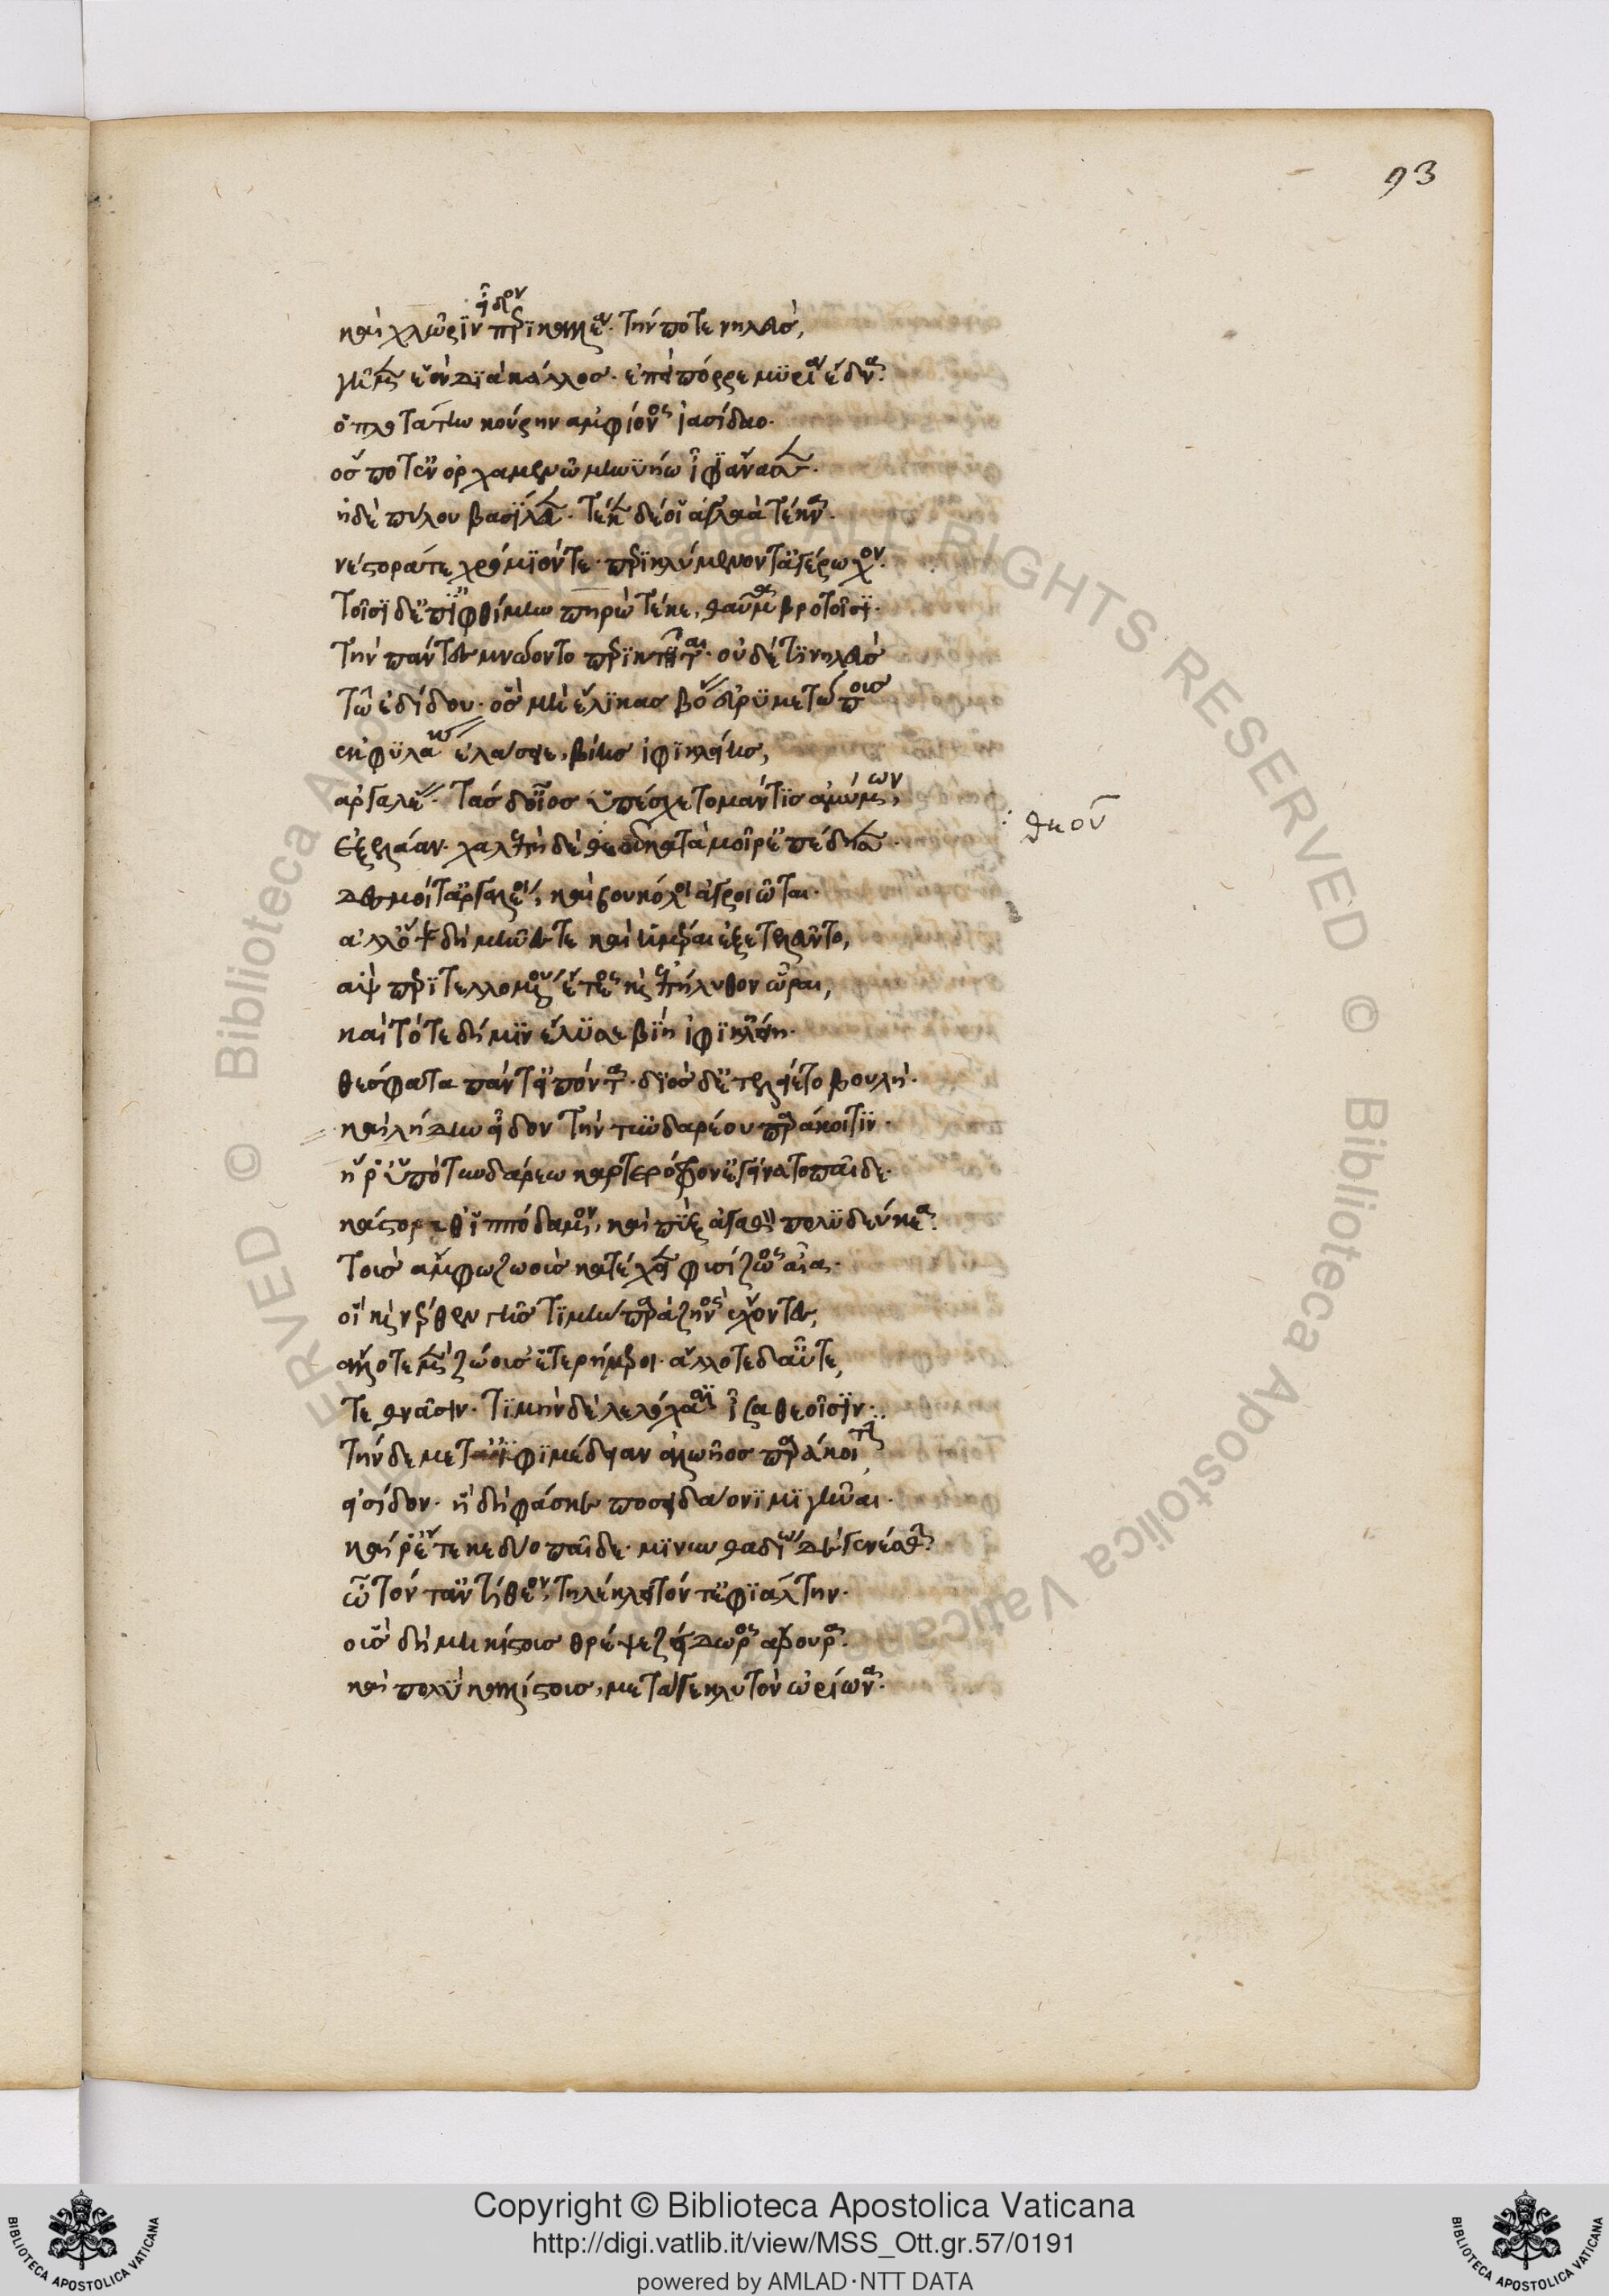 93
καὶ χλῶριν εἶδον περικαλλέα. τήν ποτε νηλεὺς,
γῆμεν ἑὸν διὰ κάλλος. ἐπεὶ πόρε μυρία ἕδνα.
ὁπλοτάτην κούρην ἀμφίονος ἰασίδαο.
ὅς ποτ' ἐν ὀρχομενῶ μινυηίω ἶφι ἄνασσεν.
ἡ δὲ πύλου βασίλευε. τέκεν δέ οἱ ἀγλαὰ τέκνα.
νέστορά τε χρόμιόν τε. περικλύμενόν τ' ἀγέρωχον.
τοῖσι δ' ἐπ' ἰφθίμην πηρὼ τέκε, θαῦμα βροτοῖσι.
τὴν πάντες μνώοντο περικτίται. οὐδέ τι νηλεὺς
τῶ ἐδίδου. ὃς μὴ ἕλικας βόας εὐρυμετώποις
ἐκ φυλάκης ἐλάσειε, βίης ἰφικλείης,
ἀργαλέας. τὰς δ' οἶος ὑπέσχετο μάντις ἀμύμων,
ἐξελάαν. χαλεπὴ δὲ θεοῦ κατὰ μοῖρ' ἐπέδησεν.
δεσμοί τ' ἀργαλέοι, καὶ βουκόλοι ἀγροιῶται.
ἀλλ' ὅτε δὴ μῆνές τε καὶ ἡμέραι ἐξετελεῦντο,
ἂψ περιτελλομένου ἔτεος καὶ ἐπήλυθον ὧραι,
καὶ τότε δή μιν ἔλυσε βίη ἰφικλείη.
θέσφατα πάντ' εἰπόντα. διὸς δ' ἐτελείετο βουλή.
καὶ λήδην εἶδον τὴν τυνδαρέου παράκοιτιν.
ἥ ῥ' ὑπὸ τυνδάρεω κρατερόφρονε γείνατο παῖδε.
κάστορά θ' ἱππόδαμον, καὶ πὺξ ἀγαθὸν πολυδεύκεα.
τοὺς ἄμφω ζωοὺς κατέχει φυσίζωος αἶα.
οἳ καὶ νέρθεν γῆς τιμὴν παρὰ ζηνὸς ἔχοντες,
ἄλλοτε μὲν ζώουσ' ἑτερήμεροι. ἄλλοτε δ' αὖτε,
τεθνᾶσιν. τιμὴν δὲ λελόγχασι ἶσα θεοῖσιν.
τὴν δὲ μετ' ἰφιμέδειαν ἀλωῆος παράκοιτιν
εἴσιδον. ἣ δὴ φάσκε ποσειδάονι μιγῆναι.
καί ῥ' ἔτεκε δύο παῖδε. μινυνθαδίω δὲ γενέσθην.
ὦτόν τ' ἀντίθεον, τηλεκλειτόν τ' ἐφιάλτην.
οὓς δὴ μηκίστους θρέψε ζείδωρος ἄρουρα.
καὶ πολὺ καλλίστους, μετά γε κλυτὸν ὠρίωνα.
Copyright © Biblioteca Apostolica Vaticana
http://digi.vatlib.it/view/MSS_Ott.gr.57/0191
powered by AMLAD·NTT DATA